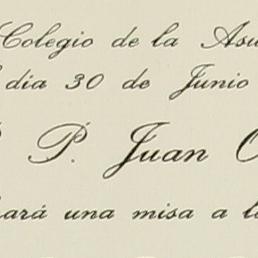 Colegio de la Asu
día 30 de Junio
P. Juan
una misa a l